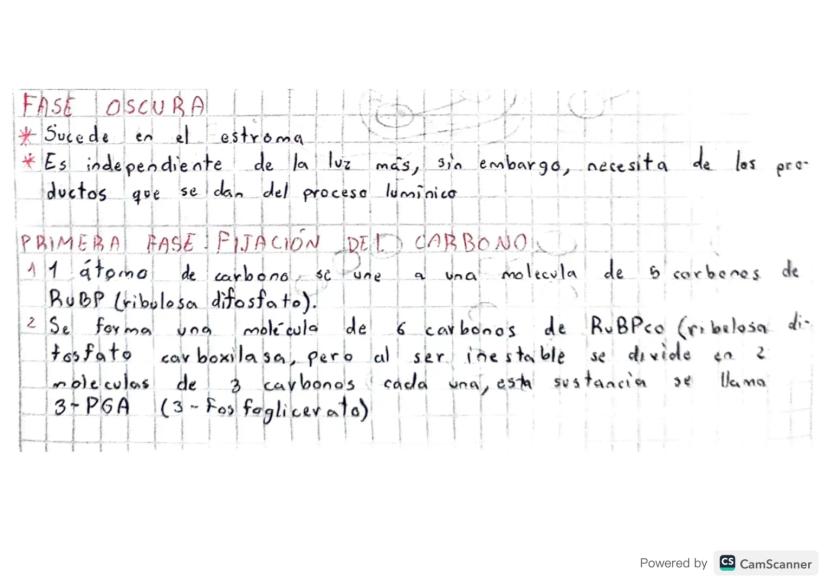 FASE OSCURA
* Sucede en el estroma
* Es independiente de la luz más, sin embargo, necesita de los pro-
ductos que se dan del proceso lumínico
PRIMERA FASE: FIJACIÓN DEL CARBONO
1 1 átomo de carbono se une a una molecula de 5 carbonos de
RuBP (ribulosa difosfato).
2 Se forma una molécula de 6 carbonos de RuBPco (ribelosa di-
fosfato carboxilasa, pero al ser inestable se divide en 2
moleculas de 3 carbonos cada una, esta sustancia se llama
3-PGA (3-Fosfoglicerato)
Powered by CS CamScanner